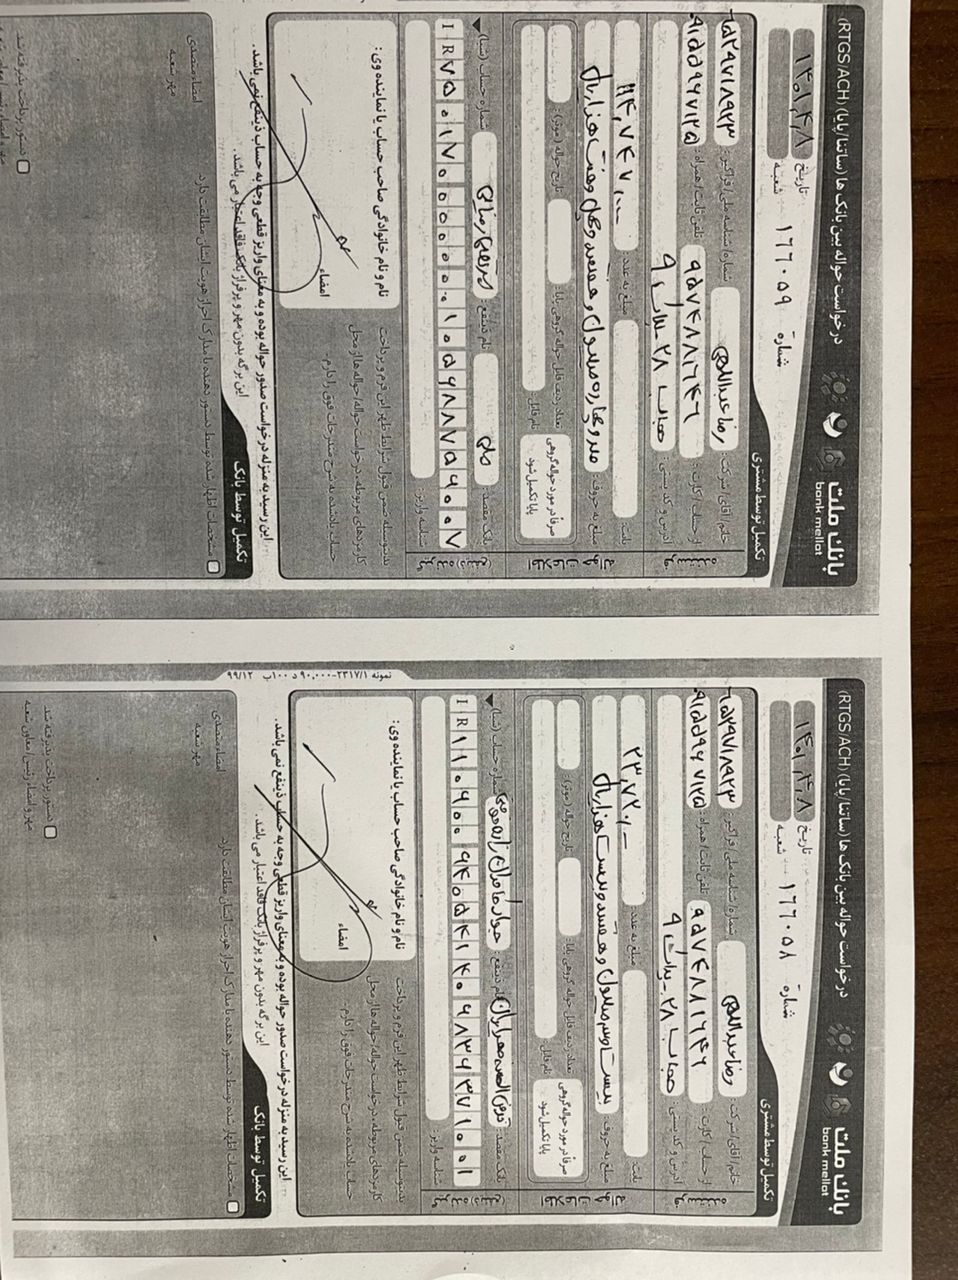 بانک ملت
bank mellat
درخواست حواله بین بانک ها (ساتنا/پایا) (RTGS/ACH)
شماره ۱۶۶۰۵۸
تاریخ ۱۴۰۱,۴,۸
شعبه
تکمیل توسط مشتری
فرستنده
خانم/آقای/شرکت: رضا عبداللهی شماره/شناسه ملی/فراگیر: ۶۵۲۹۷۱۸۹۲۳
از حساب/کارت: ۹۵۷۴۸۸۱۶۴۶ تلفن ثابت/همراه: ۹۱۵۵۹۶۷۱۲۵
آدرس و کد پستی: حجاب ۲۸ - پلاک ۹
اطلاعات حواله
بابت: مبلغ به عدد: ۲۳,۷۲۰,۰۰۰
مبلغ به حروف: بیست و سه میلیون و هفتصد و بیست هزار ریال
صرفاً در مورد حواله گروهی پایا تکمیل شود
تعداد ردیف فایل حواله گروهی پایا: تاریخ حواله (موثر):
نام فایل:
گیرنده (ذینفع)
بانک مقصد: قرض الحسنه مهر ایران نام ذینفع: شماره حساب (شبا)
IR۱۱۰۶۰۰۹۴۰۵۴۱۴۰۶۸۳۶۳۷۱۰۰۱
شناسه واریز:
بدینوسیله ضمن قبول شرایط ظهر این فرم و پرداخت
کارمزدهای مربوطه، درخواست حواله/حواله ها از محل
حساب یادشده به شرح مندرجات فوق را دارم.
نام و نام خانوادگی صاحب حساب یا نماینده وی:
امضاء
این رسید به منزله درخواست صدور حواله بوده و به معنای واریز قطعی وجه به حساب ذینفع نمی باشد.
این برگه بدون مهر و پرفراژ بانک فاقد اعتبار می باشد.
تکمیل توسط بانک
مشخصات اظهار شده توسط دستور دهنده با مدارک احراز هویت ایشان مطابقت دارد.
امضاء متصدی
مهر شعبه
دستور پرداخت پذیرفته شد
مهر و امضاء رئیس/معاون شعبه
بانک ملت
bank mellat
درخواست حواله بین بانک ها (ساتنا/پایا) (RTGS/ACH)
شماره ۱۶۶۰۵۹
تاریخ ۱۴۰۱,۴,۸
شعبه
تکمیل توسط مشتری
فرستنده
خانم/آقای/شرکت: رضا عبداللهی شماره/شناسه ملی/فراگیر: ۶۵۲۹۷۱۸۹۲۳
از حساب/کارت: ۹۵۷۴۸۸۱۶۴۶ تلفن ثابت/همراه: ۹۱۵۵۹۶۷۱۲۵
آدرس و کد پستی: حجاب ۲۸ - پلاک ۹
اطلاعات حواله
بابت: مبلغ به عدد: ۱۱۴,۷۴۷,۰۰۰
مبلغ به حروف: صد و چهارده میلیون و هفتصد و چهل و هفت هزار ریال
صرفاً در مورد حواله گروهی پایا تکمیل شود
تعداد ردیف فایل حواله گروهی پایا: تاریخ حواله (موثر):
نام فایل:
گیرنده (ذینفع)
بانک مقصد: ملی نام ذینفع: مرتضی رضایی شماره حساب (شبا)
IR۷۵۰۱۷۰۰۰۰۰۰۰۱۰۵۶۸۸۷۵۶۰۰۷
شناسه واریز:
بدینوسیله ضمن قبول شرایط ظهر این فرم و پرداخت
کارمزدهای مربوطه، درخواست حواله/حواله ها از محل
حساب یادشده به شرح مندرجات فوق را دارم.
نام و نام خانوادگی صاحب حساب یا نماینده وی:
امضاء
این رسید به منزله درخواست صدور حواله بوده و به معنای واریز قطعی وجه به حساب ذینفع نمی باشد.
این برگه بدون مهر و پرفراژ بانک فاقد اعتبار می باشد.
تکمیل توسط بانک
مشخصات اظهار شده توسط دستور دهنده با مدارک احراز هویت ایشان مطابقت دارد.
امضاء متصدی
مهر شعبه
دستور پرداخت پذیرفته شد
مهر و امضاء رئیس/معاون شعبه